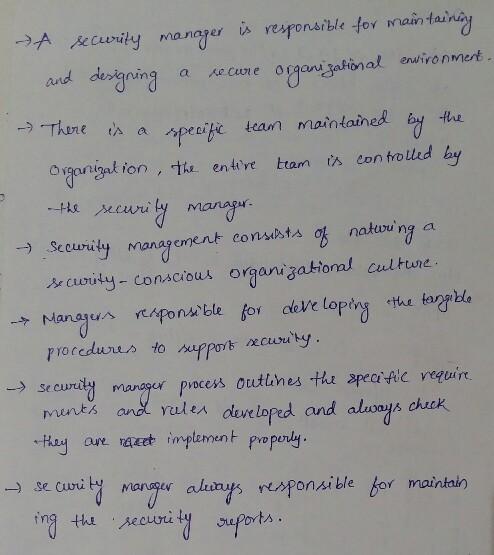 → A security manager is responsible for maintaining
and designing a secure organizational environment.
→ There is a specific team maintained by the
organization, the entire team is controlled by
the security manager.
→ Security management consists of naturing a
security-conscious organizational culture.
→ Managers responsible for developing the tangible
procedures to support security.
→ security manager process outlines the specific require
ments and rules developed and always check
they are implement properly.
→ security manager always responsible for maintain
ing the security reports.